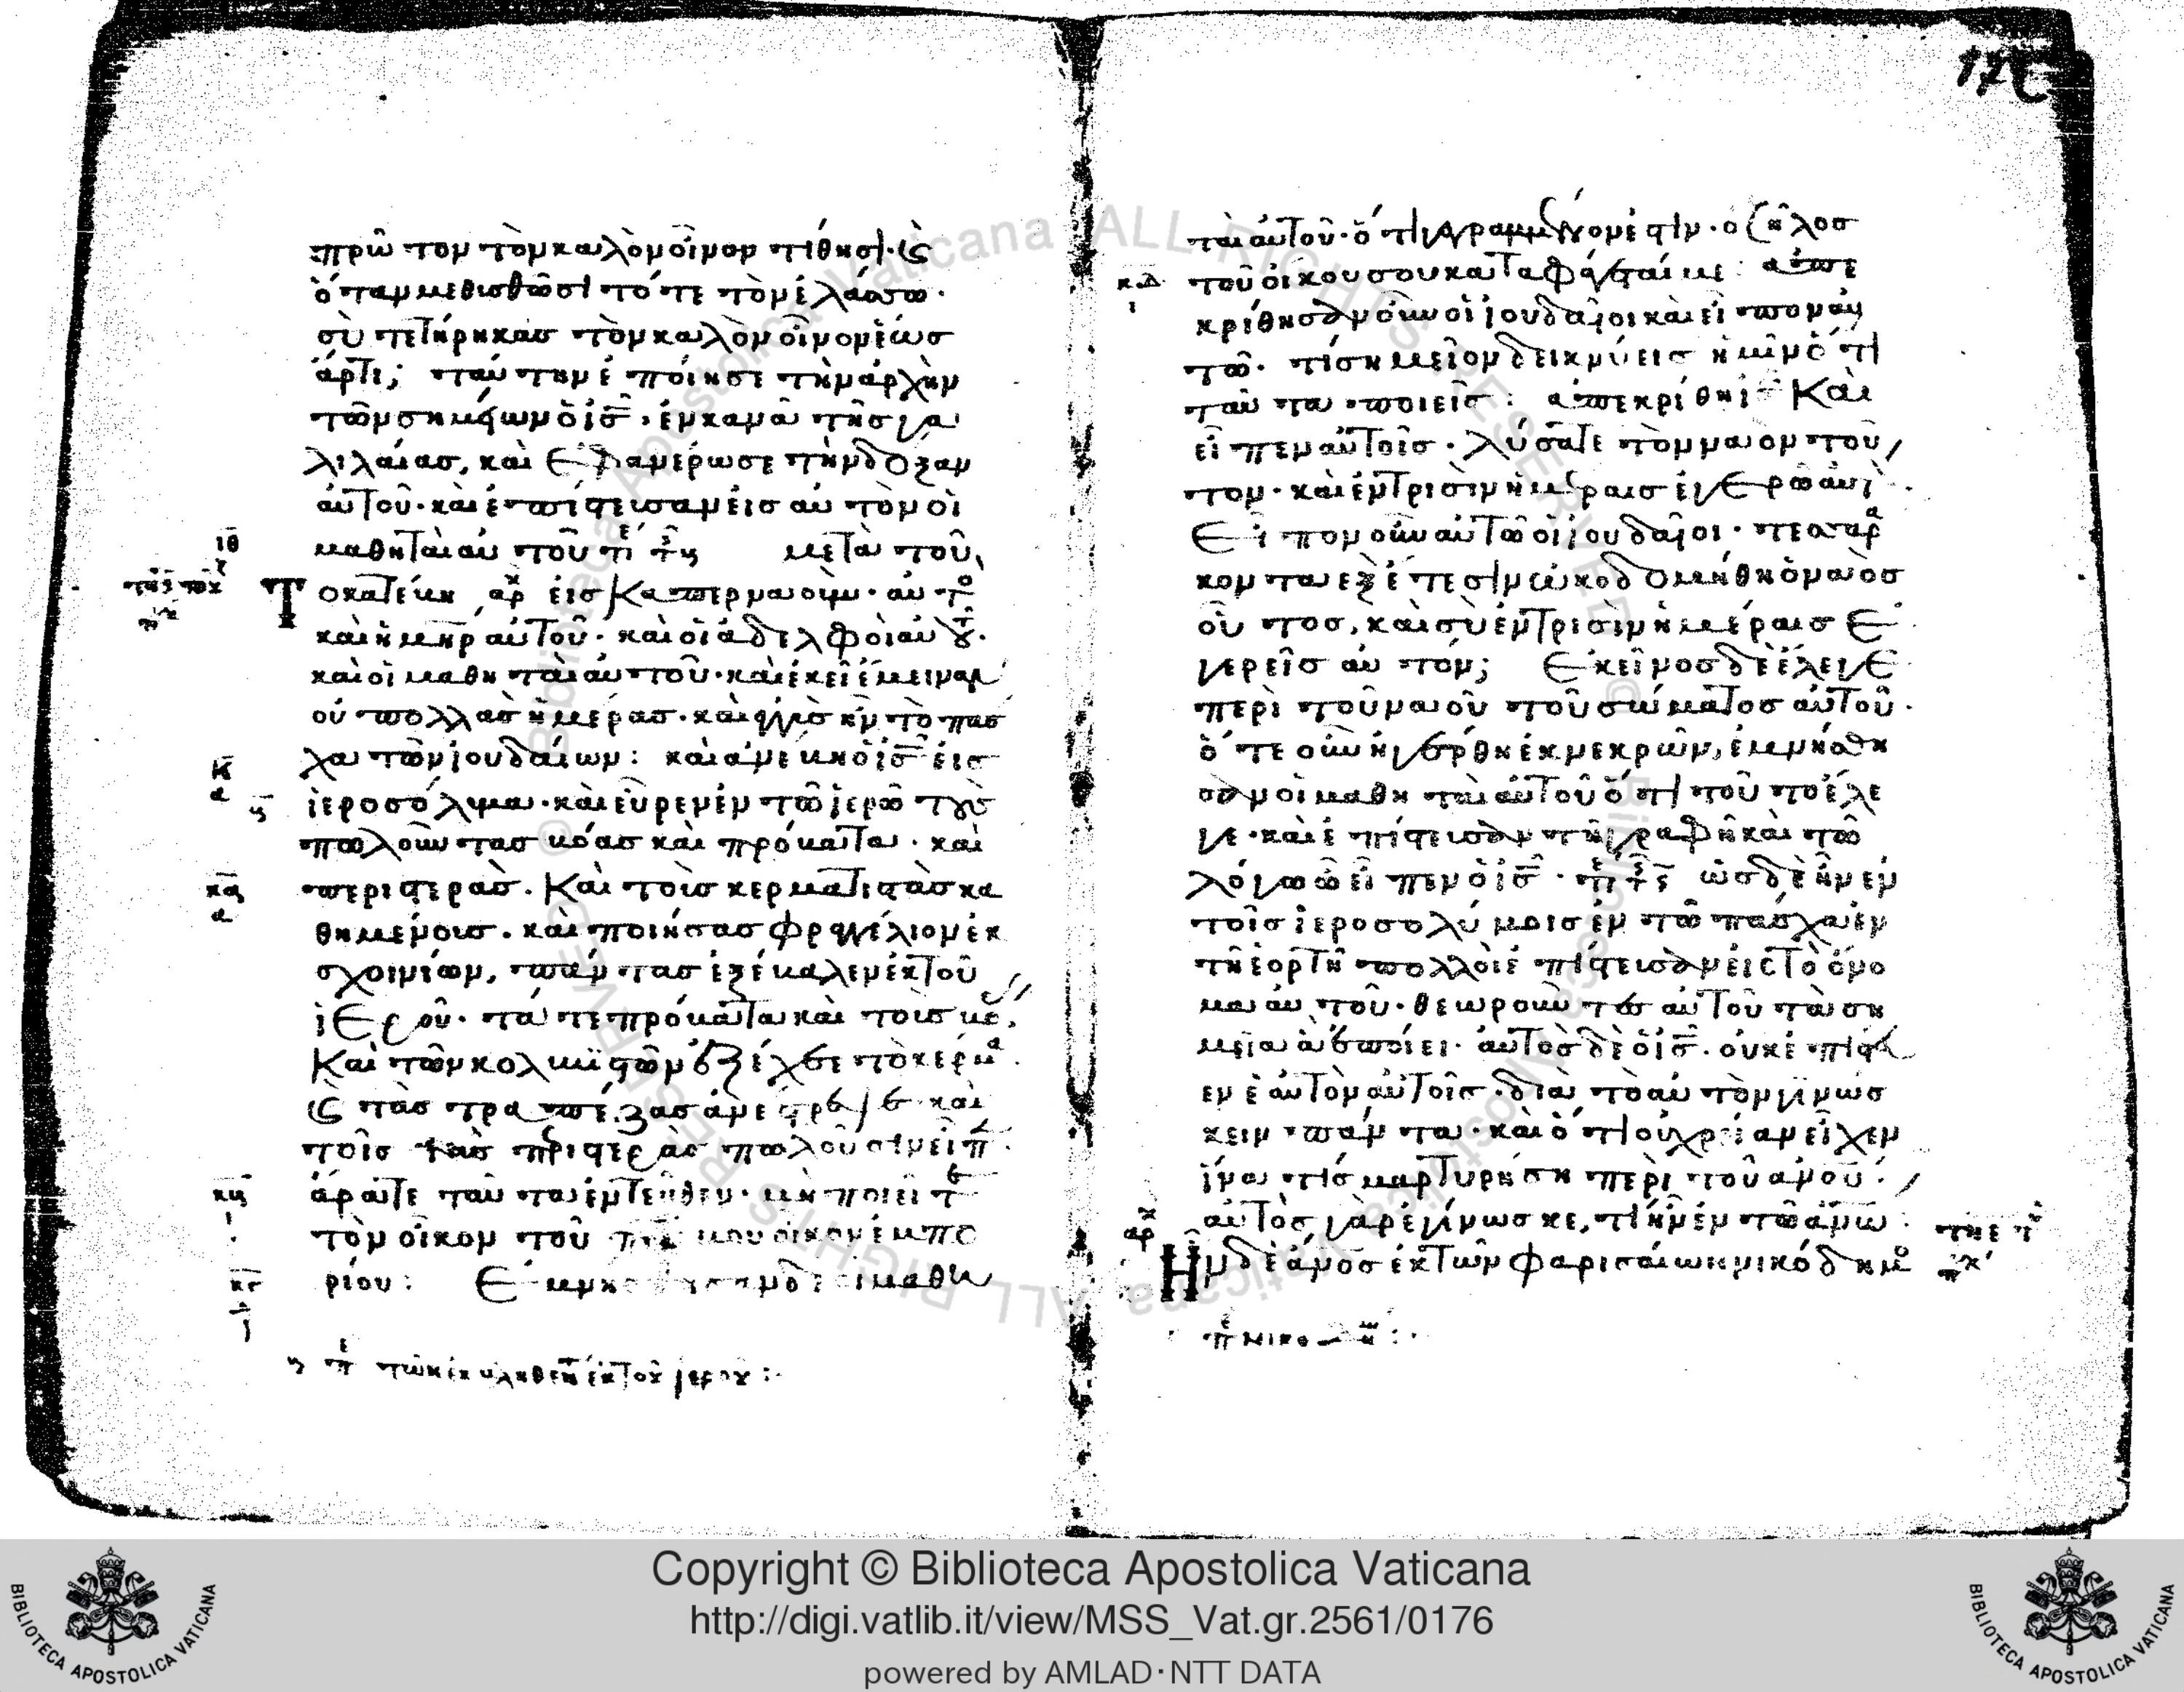 πρῶτον τὸν καλὸν οἶνον τίθησι· καὶ
ὅταν μεθισθῶσι τότε τὸν ἐλάσσω·
σὺ τετήρηκας τὸν καλὸν οἶνον ἕως
ἄρτι; ταύτην ἐποίησε τὴν ἀρχὴν
τῶν σημείων ὁ ις, ἐν κανᾶ τῆς γα
λιλαίας, καὶ ἐφανέρωσε τὴν δόξαν
αὐτοῦ· καὶ ἐπίστευσαν εἰς αὐτὸν οἱ
μαθηταὶ αὐτοῦ μετὰ τοῦ
ιθ
Το κατέβη εἰς Καπερναοὺμ· αὐτο
καὶ ἡ μηρ αὐτοῦ· καὶ οἱ ἀδελφοὶ αὐτου·
καὶ οἱ μαθηταὶ αὐτοῦ· καὶ ἐκεῖ ἔμειναν
οὐ πολλὰς ἡμέρας· καὶ ἐγγὺς ἦν τὸ πάσ
χα τῶν ἰουδαίων: καὶ ἀνέβη ὁ ις εἰς
κ
α
ἱεροσόλυμα· καὶ εὗρεν ἐν τῷ ἱερῷ τοὺς
πωλοῦντας βόας καὶ πρόβατα· καὶ
κα
α
περιστεράς. Καὶ τοὺς κερματιστὰς κα
θημένους. καὶ ποιήσας φραγγέλιον ἐκ
σχοινίων, πάντας ἐξέβαλεν ἐκ τοῦ
ἱεροῦ· τά τε πρόβατα καὶ τοὺς βό.
Καὶ τῶν κολλυβιστῶν ἐξέχεε τὸ κέρμα
καὶ τὰς τραπέζας ἀνέστρεψε· καὶ
τοῖς τὰς περιστερὰς πωλοῦσιν εἶπ
ἄρατε ταῦτα ἐντεῦθεν· μὴ ποιεῖτε
τὸν οἶκον τοῦ πρς μου οἶκον ἐμπο
ρίου: Ἐμνήσθησαν δὲ οἱ μαθη
τῶν ἐκβληθέντ ἐκ τοῦ ἱεροῦ:
ται αὐτοῦ· ὅτι γραμμένον ἐστίν· ὁ ζῆλος
κδ
ι
τοῦ οἴκου σου καταφάγεταί με: ἀπε
κρίθησαν οὖν οἱ ἰουδαῖοι καὶ εἶπον αὐ
τῶ· τί σημεῖον δεικνύεις ἡμῖν ὅτι
ταῦτα ποιεῖς: ἀπεκρίθη ις Καὶ
εἶπεν αὐτοῖς· λύσατε τὸν ναὸν τοῦ
τον· καὶ ἐν τρισὶν ἡμέραις ἐγερῶ αὐτ
Εἶπον οὖν αὐτῶ οἱ ἰουδαῖοι· τεσσαρ
κοντα ἐξ ἔτεσιν ὠκοδομήθη ὁ ναὸς
οὗτος, καὶ σὺ ἐν τρισὶν ἡμέραις ἐ
γερεῖς αὐτόν; Ἐκεῖνος δὲ ἔλεγε
περὶ τοῦ ναοῦ τοῦ σώματος αὐτοῦ·
ὅτε οὖν ἠγέρθη ἐκ νεκρῶν, ἐμνήσθη
σαν οἱ μαθηταὶ αὐτοῦ ὅτι τοῦτο ἔλε
γε· καὶ ἐπίστευσαν τῇ γραφῇ καὶ τῶ
λόγω ᾧ εἶπεν ὁ ις· ὡς δὲ ἦν ἐν
τοῖς ἱεροσολύμοις ἐν τῷ πάσχα ἐν
τῇ ἑορτῇ πολλοὶ ἐπίστευσαν εἰς τὸ ὄνο
μα αὐτοῦ· θεωροῦντες αὐτοῦ τὰ ση
μεῖα ἃ ἐποίει· αὐτὸς δὲ ὁ ις. οὐκ ἐπίστευ
εν ἑαυτὸν αὐτοῖς· διὰ τὸ αὐτὸν γινώσ
κειν πάντα· καὶ ὅτι οὐ χρείαν εἶχεν
ἵνα τὶς μαρτυρήση περὶ τοῦ ανου·
αὐτὸς γὰρ ἐγίνωσκε, τί ἦν ἐν τῷ ανω
Ἦν δὲ ανος ἐκ τῶν φαρισαίων νικόδημο
Copyright © Biblioteca Apostolica Vaticana
http://digi.vatlib.it/view/MSS_Vat.gr.2561/0176
powered by AMLAD·NTT DATA
BIBLIOTECA APOSTOLICA VATICANA
BIBLIOTECA APOSTOLICA VATICANA